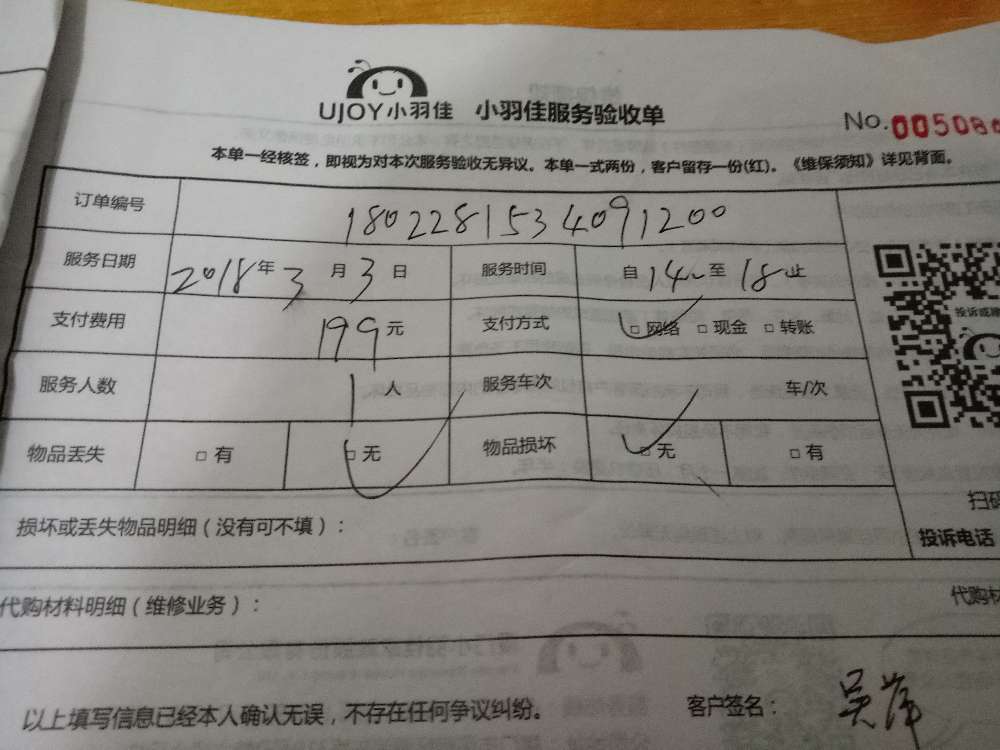 UJOY小羽佳 小羽佳服务验收单
No.00508
本单一经核签，即视为对本次服务验收无异议。本单一式两份，客户留存一份(红)。《维保须知》详见背面。
订单编号 1802281534091200
服务日期 2018年3月3日 服务时间 自14~至18止
支付费用 199元 支付方式 □网络 □现金 □转账
投诉或建
服务人数 1人 服务车次 车/次
物品丢失 □有 □无 物品损坏 □无 □有
扫码
损坏或丢失物品明细（没有可不填）： 投诉电话
代购材料明细（维修业务）： 代购材
以上填写信息已经本人确认无误，不存在任何争议纠纷。 客户签名：吴